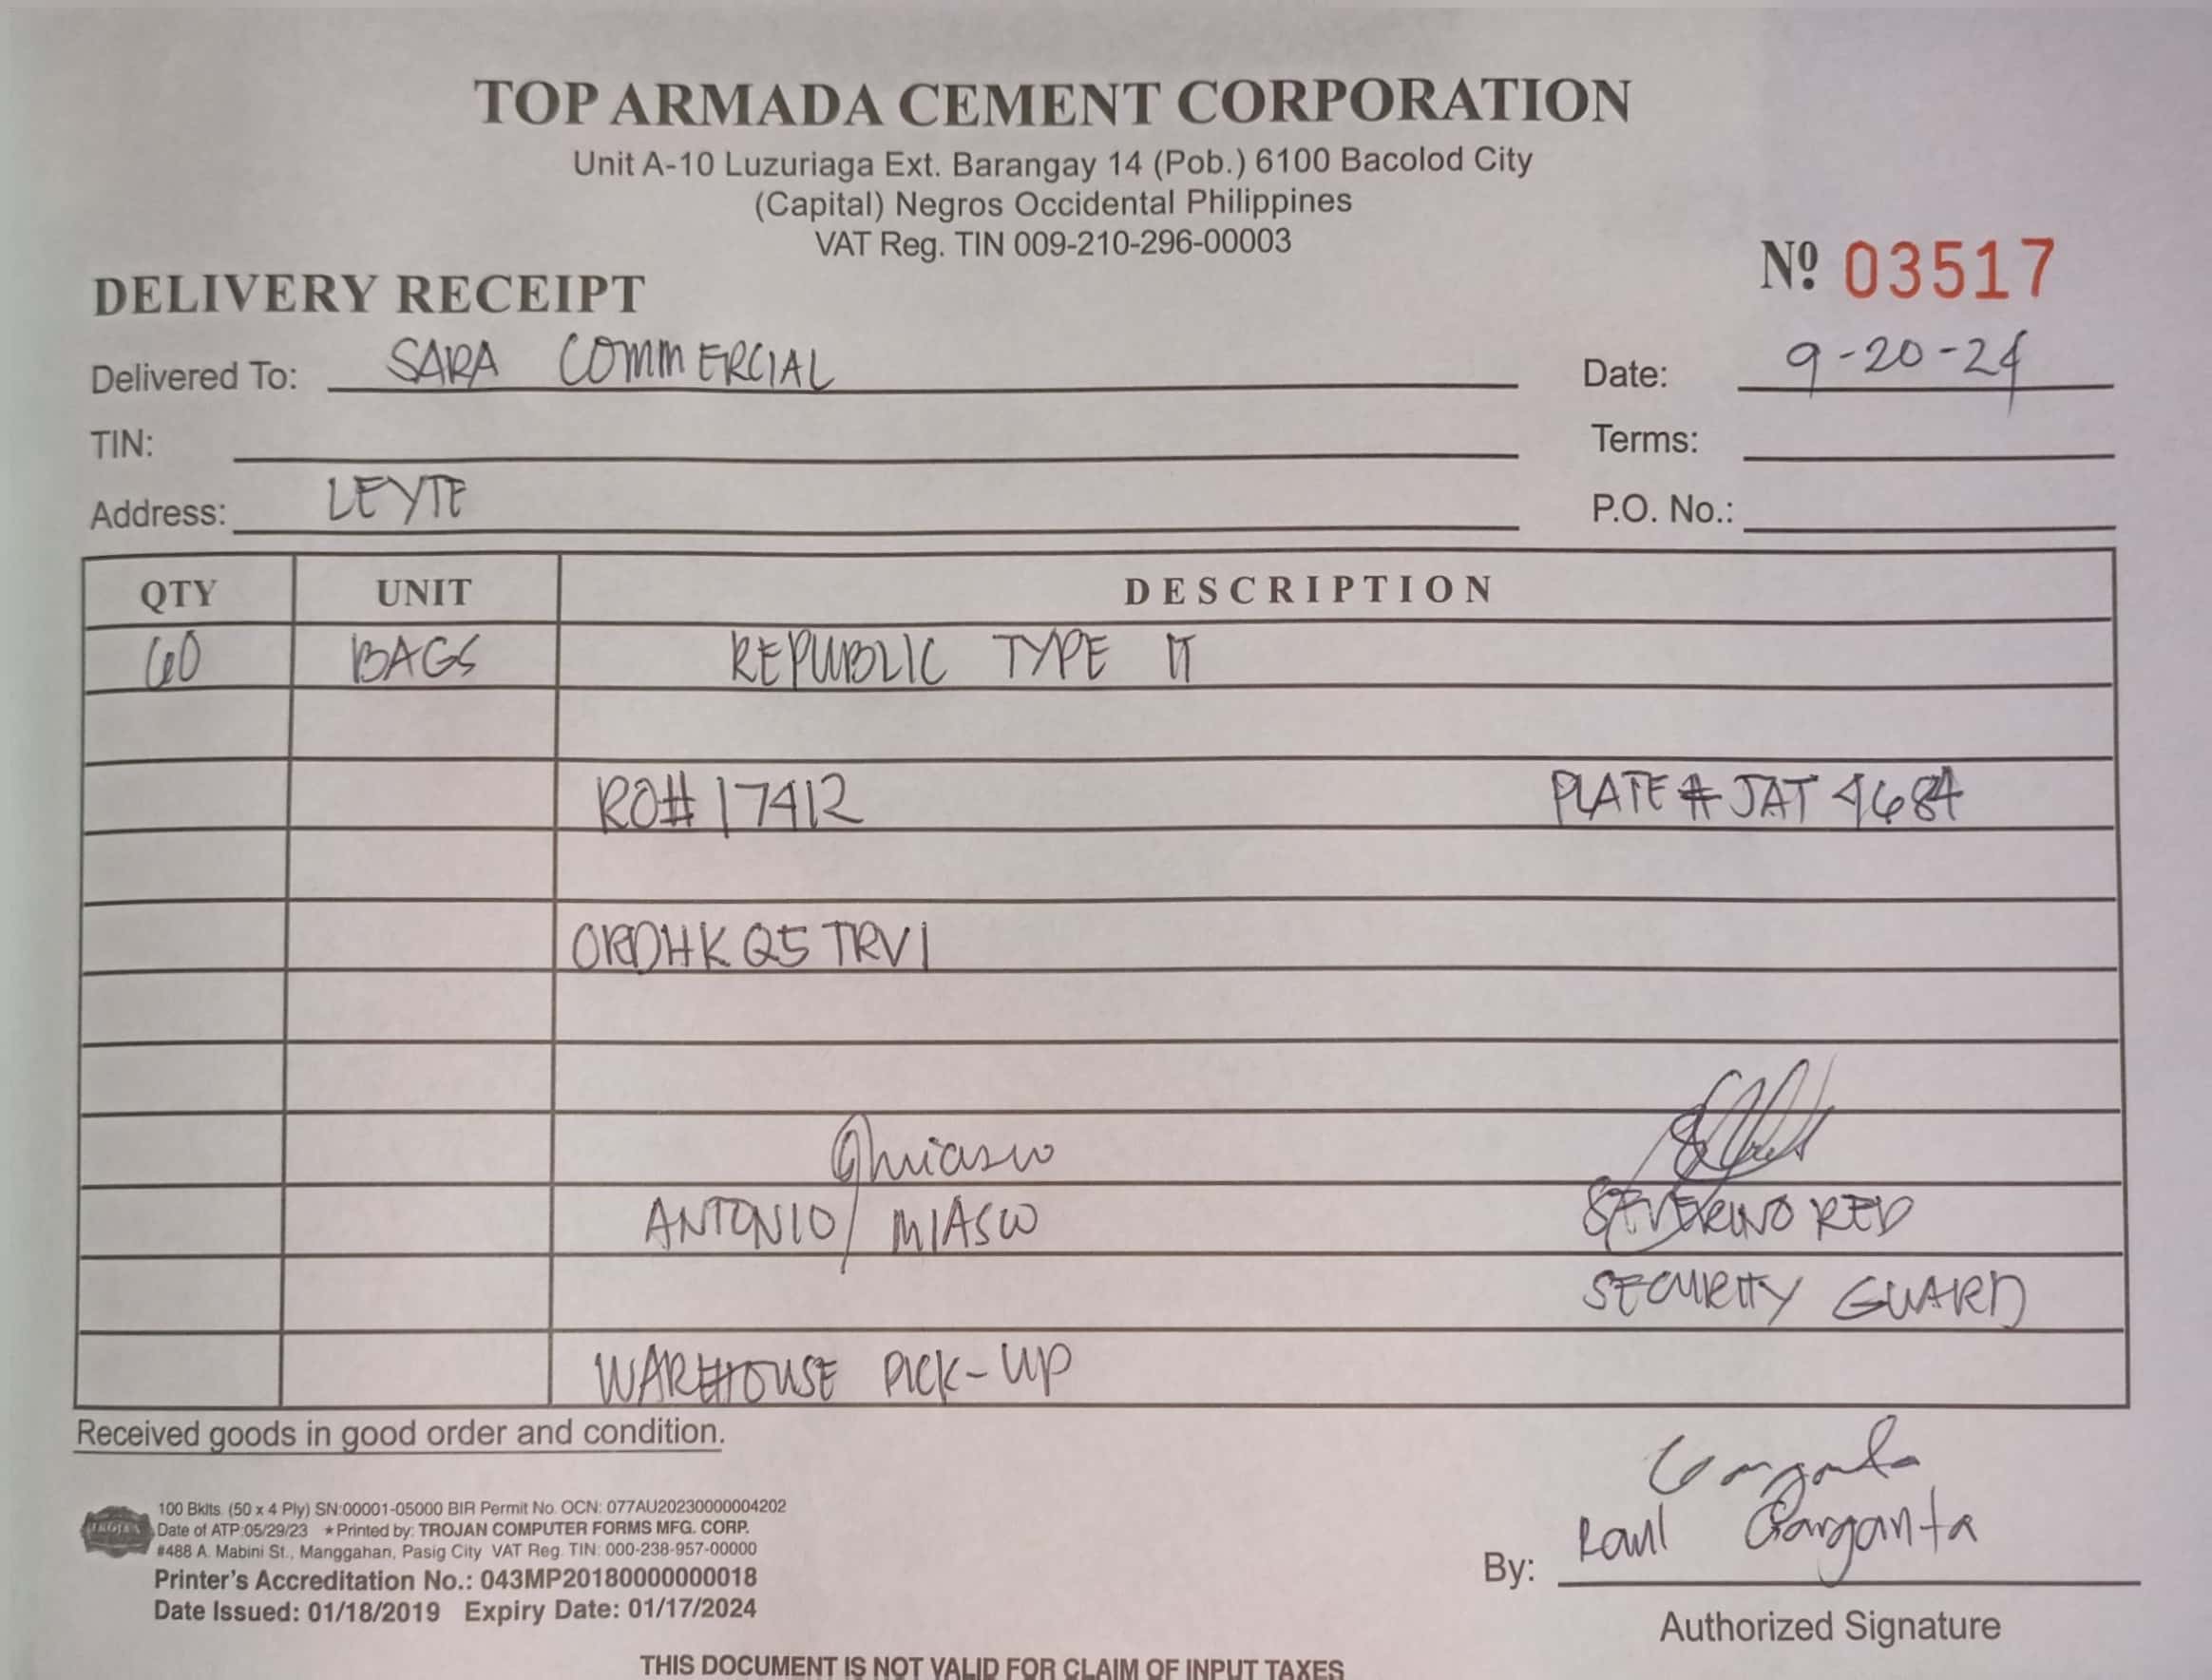 TOP ARMADA CEMENT CORPORATION
Unit A-10 Luzuriaga Ext. Barangay 14 (Pob.) 6100 Bacolod City
(Capital) Negros Occidental Philippines
VAT Reg. TIN 009-210-296-00003
Nº 03517
DELIVERY RECEIPT
Delivered To: SARA COMMERCIAL Date: 9-20-24
TIN: Terms:
Address: LEYTE P.O. No.:
QTY UNIT DESCRIPTION
60 BAGS REPUBLIC TYPE II
RO# 17412 PLATE # JAT 4684
ORDHKQ5TRV1
ANTONIO MIASCO SEVERINO RED
SECURITY GUARD
WAREHOUSE PICK-UP
Received goods in good order and condition.
100 Bklts. (50 x 4 Ply) SN:00001-05000 BIR Permit No. OCN: 077AU20230000004202
Date of ATP:05/29/23 ★Printed by: TROJAN COMPUTER FORMS MFG. CORP.
#488 A. Mabini St., Manggahan, Pasig City VAT Reg. TIN: 000-238-957-00000
Printer's Accreditation No.: 043MP20180000000018
Date Issued: 01/18/2019 Expiry Date: 01/17/2024
By: Raul Garganta
Authorized Signature
THIS DOCUMENT IS NOT VALID FOR CLAIM OF INPUT TAXES